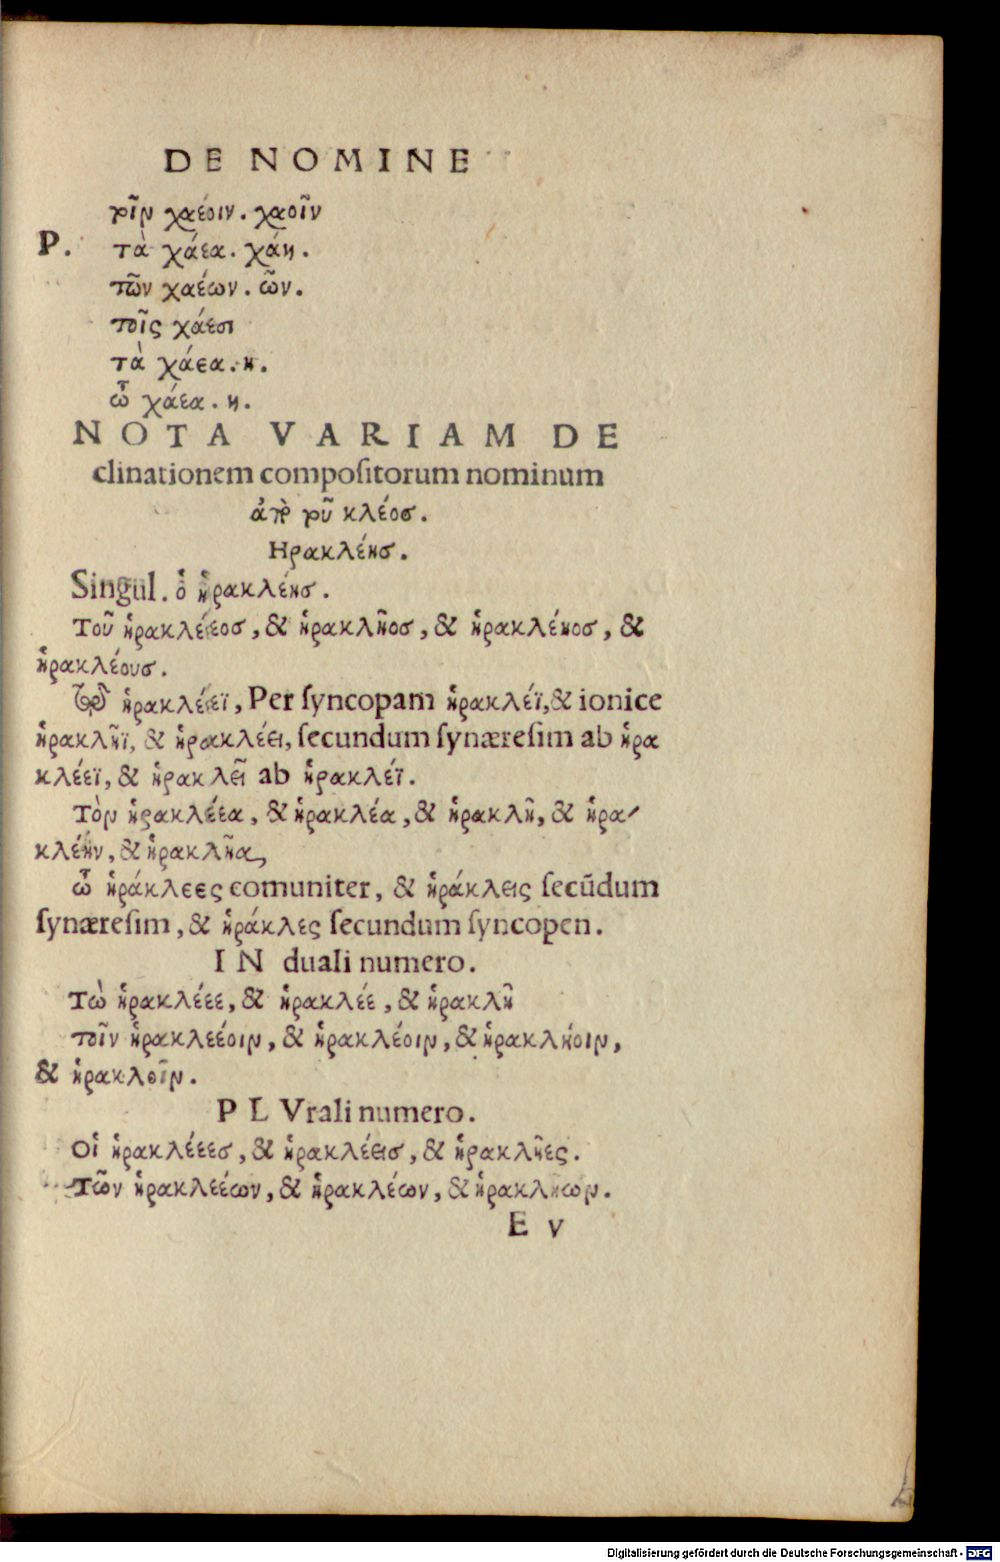 DE NOMINE
τοῖν χαέοιν. χαοῖν
P. τὰ χάεα. χάη.
τῶν χαέων. ῶν.
τοῖς χάεσι
τὰ χάεα. η.
ὦ χάεα. η.
NOTA VARIAM DE
clinationem compoſitorum nominum
ἀπὸ τοῦ κλέοσ.
Ηρακλέησ.
Singul. ὁ ἡρακλέησ.
Τοῦ ἡρακλέεοσ, & ἡρακλῆοσ, & ἡρακλέηοσ, &
ἡρακλέουσ.
Τῷ ἡρακλέεϊ, Per ſyncopam ἡρακλέϊ, & ionice
ἡρακλῆϊ, & ἡρακλέει, ſecundum ſynæreſim ab ἡρα
κλέεϊ, & ἡρακλεῖ ab ἡρακλέϊ.
Τὸν ἡρακλέεα, & ἡρακλέα, & ἡρακλῆ, & ἡρα
κλέην, & ἡρακλῆα,
ὦ ἡράκλεες comuniter, & ἡράκλεις ſecūdum
ſynæreſim, & ἡράκλες ſecundum ſyncopen.
IN duali numero.
Τὼ ἡρακλέεε, & ἡρακλέε, & ἡρακλῆ
τοῖν ἡρακλεέοιν, & ἡρακλέοιν, & ἡρακλήοιν,
& ἡρακλοῖν.
PLVrali numero.
Οἱ ἡρακλέεεσ, & ἡρακλέεισ, & ἡρακλῆες.
Τῶν ἡρακλεέων, & ἡρακλέων, & ἡρακλήων.
E v
Digitalisierung gefördert durch die Deutsche Forschungsgemeinschaft - DFG